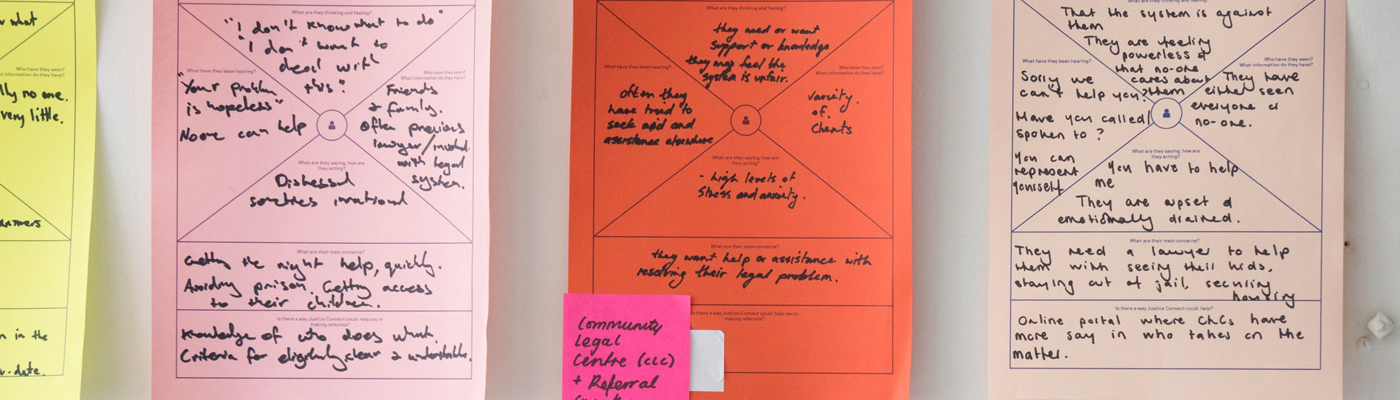 What are they thinking and feeling?
"I don't know what to do"
"I don't want to
deal with
this"
What have they been hearing?
"Your problem
is hopeless"
No one can help
Who have they seen?
What information do they have?
Friends
& family.
Often previous
lawyer/
with legal
system.
What are they saying, how are
they acting?
Distressed
irrational
What are their main concerns?
Getting the right help, quickly.
Avoiding prison. Getting access
to their children.
Is there a way Justice Connect could help you in
making referrals?
Knowledge of who does what.
Criteria for eligibility clear & understandable.
What are they thinking and feeling?
they need or want
support or knowledge
they may feel the
system is unfair.
What have they been hearing?
Often they
have tried to
seek aid and
assistance elsewhere
Who have they seen?
What information do they have?
variety
of
Clients
What are they saying, how are
they acting?
- high levels of
Stress and anxiety.
What are their main concerns?
they want help or assistance with
resolving their legal problem.
Is there a way Justice Connect could help you in
making referrals?
Community
legal
Centre (CLC)
+ Referral
What are they thinking and feeling?
That the system is against
them
They are feeling
powerless &
that no-one
cares about
them
What have they been hearing?
Sorry we
can't help you?
Have you called/
spoken to?
You can
represent
yourself
Who have they seen?
What information do they have?
They have
either seen
everyone or
no-one.
What are they saying, how are
they acting?
You have to help
me
They are upset &
emotionally drained.
What are their main concerns?
They need a lawyer to help
them with seeing their kids,
staying out of jail, securing
housing
Is there a way Justice Connect could help?
Online portal where CLCs have
more say in who takes on the
matter.
what
Who have they seen?
What information do they have?
no one.
very little.
answers
in the